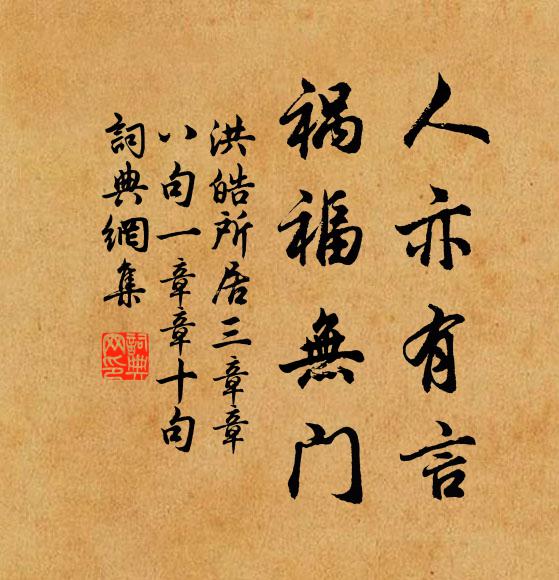 人亦有言
祸福無门
洪皓所居三章章
八句一章章十句
詞典網集
詞典
网印